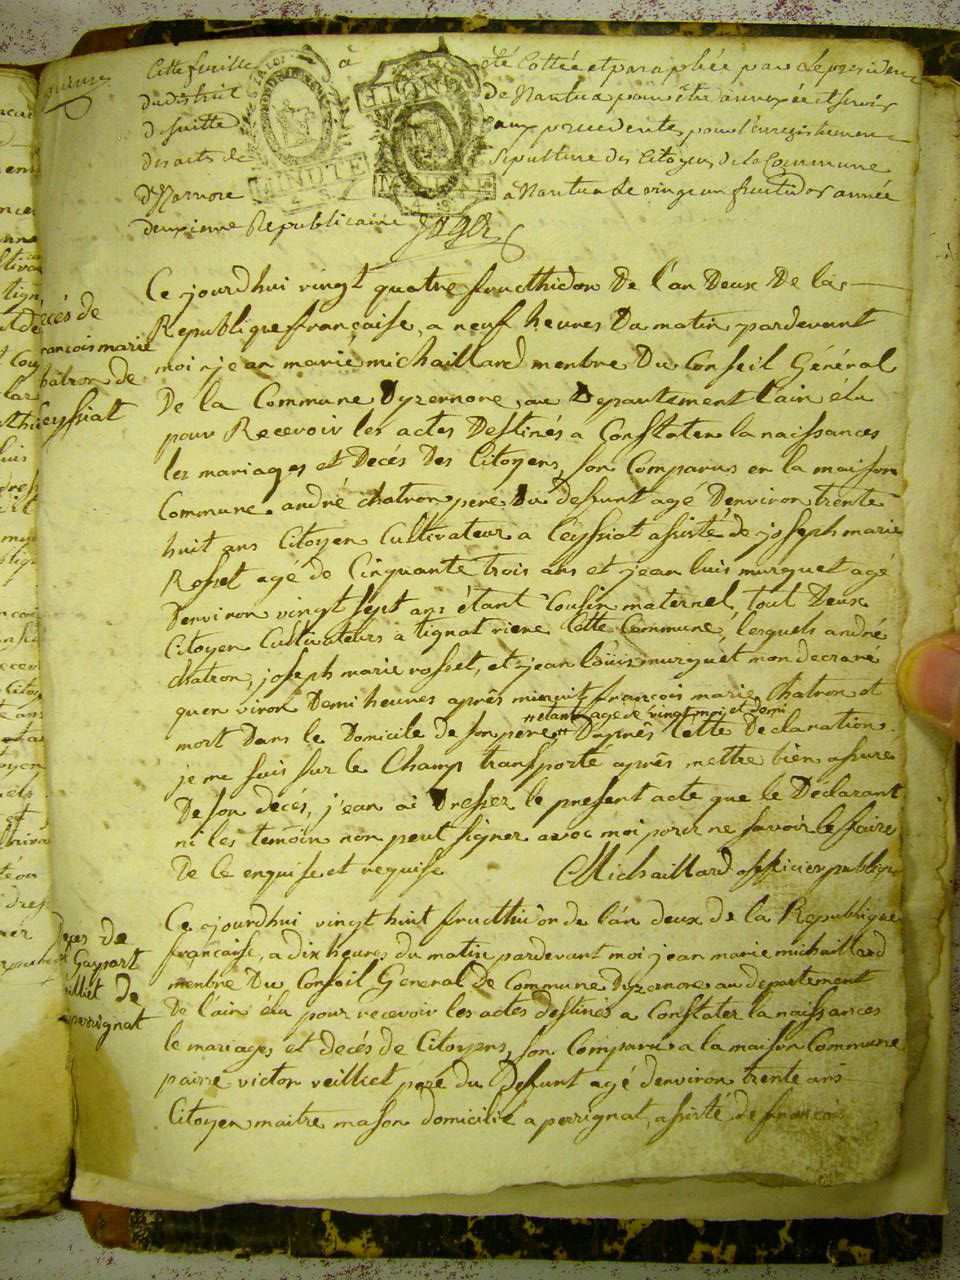 Cette feuille à été Cottée et paraphée par le president
du district de Nantua pour être annexée et servir
de suitte aux precedentes pour l'enregistrement
des acts de Sepulture des Citoyens de la Commune
d'Yzernore à Nantua le vingt un fructidor année
deuxieme Republicaine
Ce jourdhui vingt quatre fructhidor De l'an Deux De la
Republique française, a neuf heures Du matin pardevant
moi jean marie michaillard menbre Du Conseil Général
De la Commune Dyzernore, au Departement Lain élu
pour Recevoir les actes Destinés a Constater la naissances
les mariages et Decés Des Citoyens, son Comparus en la maison
Commune. andré chatron pere Du defunt agé Denviron trente
huit ans Citoyen Cultivateur a Ceyssiat assisté de joseph marie
Rosset agé de Cinquante trois ans et jean luis murguet agé
Denviron vingt sept ans étant Cousin maternel, tout Deux
Citoyen Cultivateurs a tignat riere Cette Commune, lesquels andré
chatron, joseph marie rosset, et jean loüis murguet mon decraré
quen viron Demi heures après minuit françois marie Chatron et
etant agé de vingt moi et demi
mort Dans le Domicile de son pere Daprès Cette Declaration
je me suis sur le Champ transporté après mettre bien assuré
De son decés, j'ean ai Dresser le présent acte que le Déclarant
ni les temoin non peut signer avec moi pour ne savoir le faire
De ce enquise et requise Michaillard officier public
Décés de
françois marie
chatron de
Ceyssiat
Ce jourdhui vingt huit fructhidor de l'an deux de la Republique
française, a dix heures du matin pardevant moi jean marie michaillard
menbre Du Conseil General de Commune Dyzernore au departement
De l'ain élu pour recevoir les actes destinés a Constater la naissances
le mariages et decés de Citoyens, son Comparu a la maison Commune
paire victor veilliet pere du Defunt agé denviron trente ans
Citoyen maitre mason domicilié a perrignat, assisté de françois
Deces de
Gaspart
veilliet De
perrignat